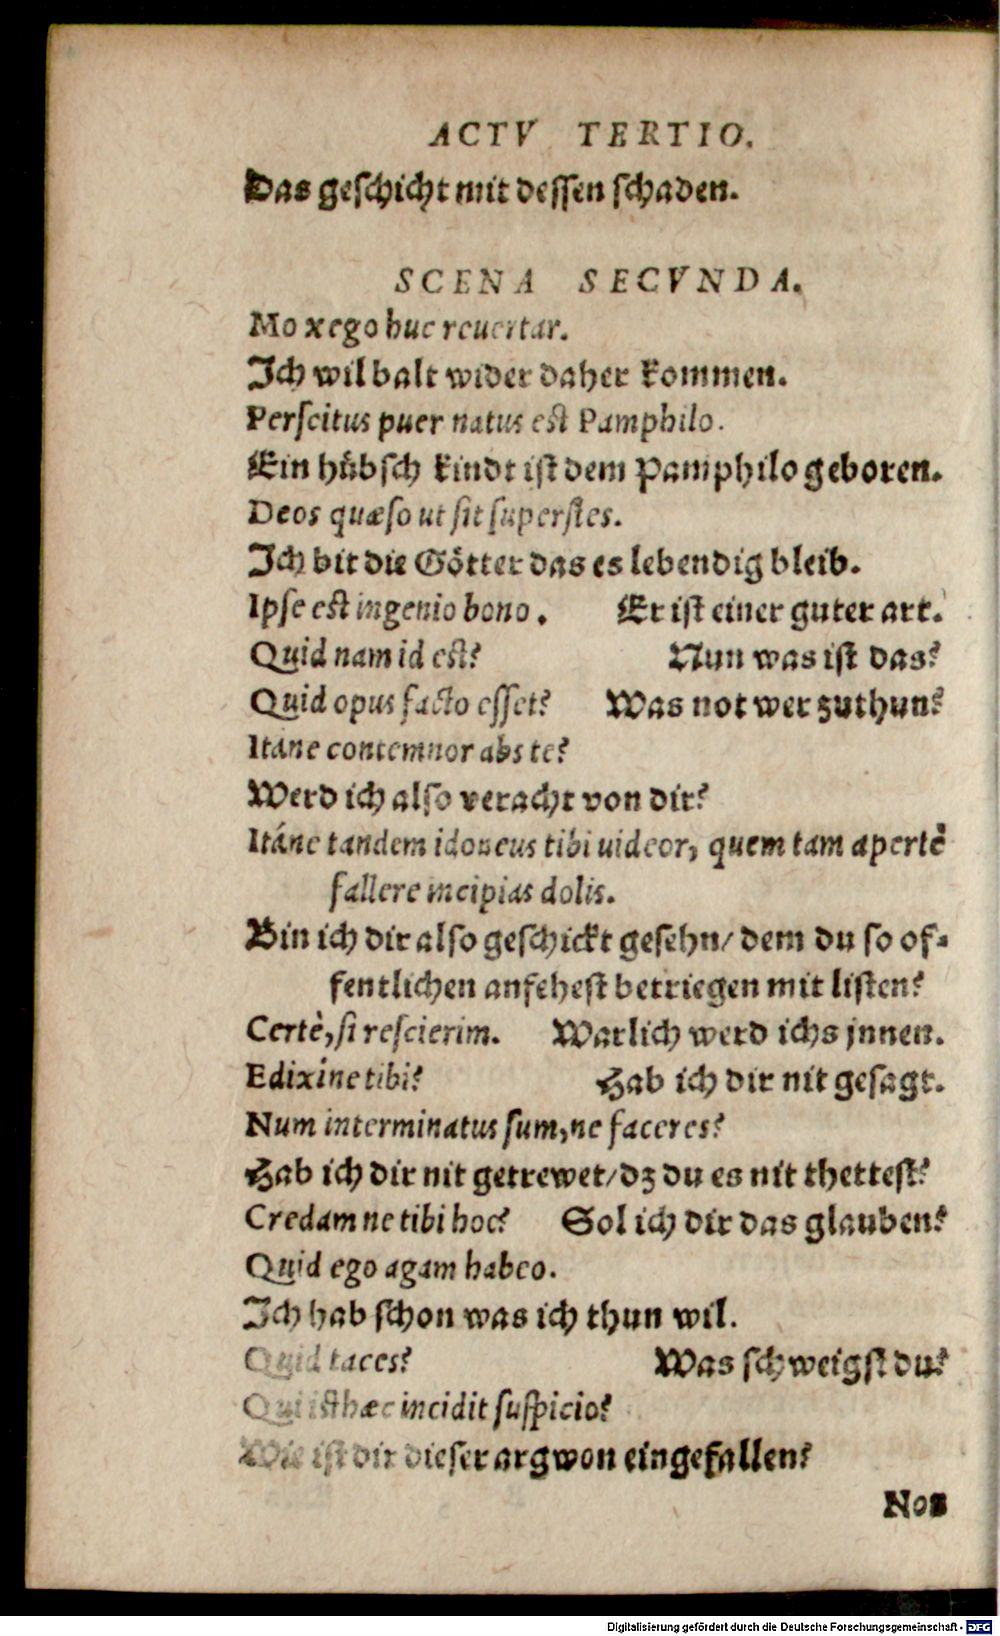 ACTV TERTIO.
Das geschicht mit dessen schaden.
SCENA SECVNDA.
Mo xego huc reuertar.
Ich wil balt wider daher kommen.
Perscitus puer natus est Pamphilo.
Ein hübsch kindt ist dem Pamphilo geboren.
Deos quæso ut sit superstes.
Ich bit die Götter das es lebendig bleib.
Ipse est ingenio bono. Er ist einer guter art.
Quid nam id est? Nun was ist das?
Quid opus facto esset? Was not wer zuthun?
Itáne contemnor abs te?
Werd ich also veracht von dir?
Itáne tandem idoneus tibi uideor, quem tam apertè
fallere incipias dolis.
Bin ich dir also geschickt gesehn/ dem du so of-
fentlichen anfehest betriegen mit listen?
Certè, si rescierim. Warlich werd ichs jnnen.
Edixíne tibi? Hab ich dir nit gesagt.
Num interminatus sum, ne faceres?
Hab ich dir nit getrewet/ dz du es nit thettest?
Credam ne tibi hoc? Sol ich dir das glauben?
Quid ego agam habeo.
Ich hab schon was ich thun wil.
Quid taces? Was schweigst du?
Qui isthæc incidit suspicio?
Wie ist dir dieser argwon eingefallen?
Nos
Digitalisierung gefördert durch die Deutsche Forschungsgemeinschaft - DFG